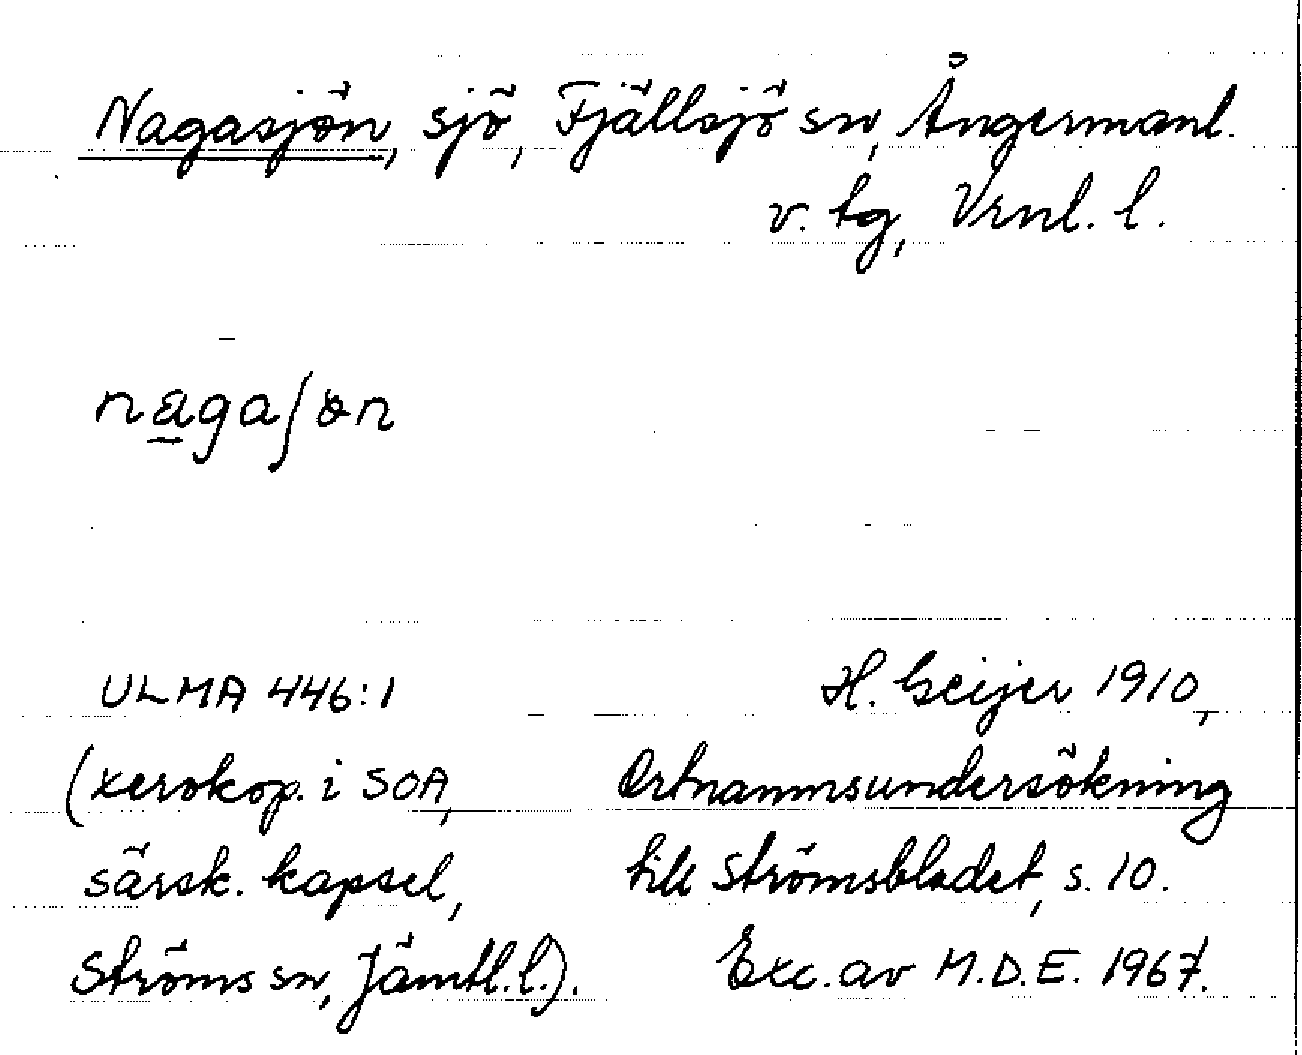 Nagasjön, sjö, Fjällsjö sn, Ångermanl.
v. tg, Vrnl. l.
nagaʃön
ULMA 446:1
(xerokop. i SOA,
särsk. kapsel,
Ströms sn, Jämtl.l.).
H. Geijer 1910,
Ortnamnsundersökning
till Strömsbladet, s. 10.
Exc. av M.D.E. 1967.